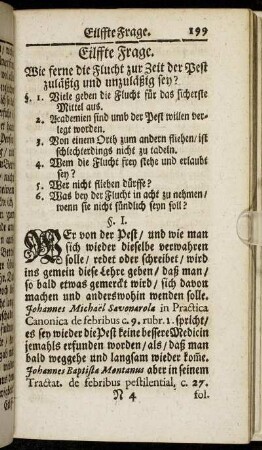 Eilffte Frage. 199
Eilffte Frage.
Wie ferne die Flucht zur Zeit der Pest
zuläßig und unzuläßig sey?
§. 1. Viele geben die Flucht für das sicherste
Mittel aus.
2. Academien sind umb der Pest willen ver-
legt worden.
3. Von einem Orth zum andern fliehen/ ist
schlechterdings nicht zu tadeln.
4. Wem die Flucht frey stehe und erlaubt
sey?
5. Wer nicht fliehen dürffe?
6. Was bey der Flucht in acht zu nehmen/
wenn sie nicht sündlich seyn soll?
§. I.
WEr von der Pest/ und wie man
sich wieder dieselbe verwahren
solle/ redet oder schreibet/ wird
ins gemein diese Lehre geben/ daß man/
so bald etwas gemerckt wird/ sich davon
machen und anderswohin wenden solle.
Johannes Michaël Savonarola in Practica
Canonica de febribus c. 9. rubr. 1. spricht/
es sey wieder die Pest keine bessere Medicin
jemahls erfunden worden/ als/ daß man
bald weggehe und langsam wieder kom̃e.
Johannes Baptista Montanus aber in seinem
Tractat. de febribus pestilential, c. 27.
N 4 fol.